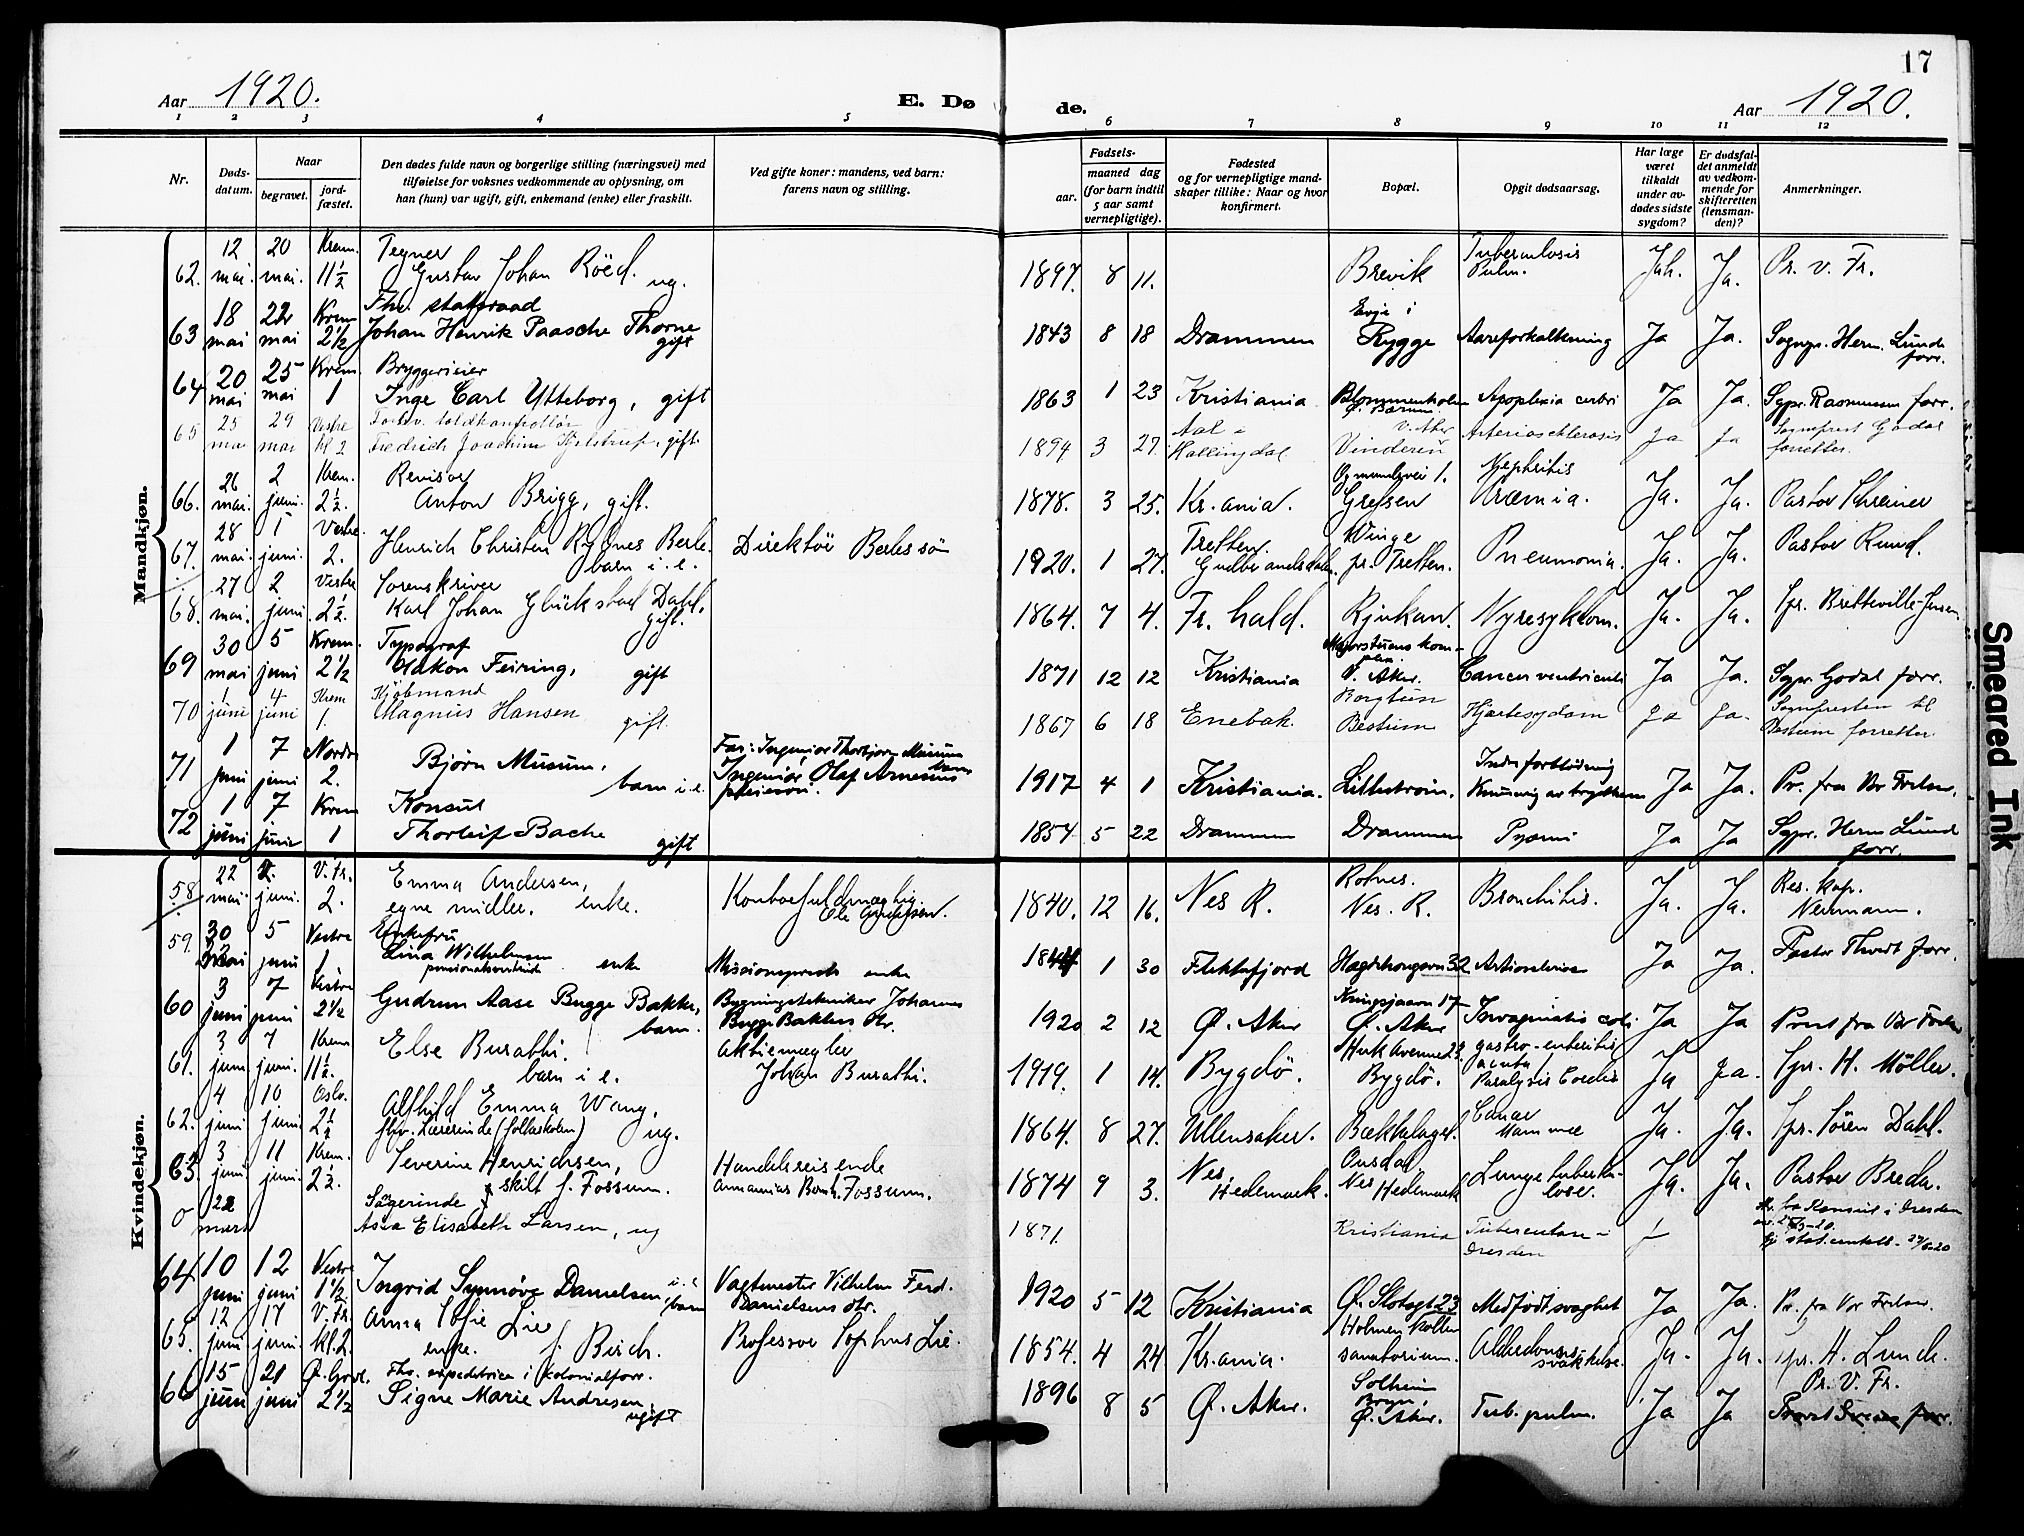 17
Aar 1920. E. Dø de. Aar 1920.
1 2 3 4 5 6 7 8 9 10 11 12
Nr. Døds-datum. Naar begravet. jord-fæstet. Den dødes fulde navn og borgerlige stilling (næringsvei) med tilføielse for voksnes vedkommende av oplysning, om han (hun) var ugift, gift, enkemand (enke) eller fraskilt. Ved gifte koner: mandens, ved barn: farens navn og stilling. Fødsels- aar. maaned dag (for barn indtil 5 aar samt vernepligtige). Fødested og for vernepligtige mand-skaper tillike: Naar og hvor konfirmert. Bopæl. Opgit dødsaarsag. Har læge været tilkaldt under av-dødes sidste sygdom? Er dødsfal-det anmeldt av vedkom-mende for skifteretten (lensman-den)? Anmerkninger.
Mandkjøn.
62. 12 mai. 20 mai. Krem. 11½ Tegner Gustav Johan Röed. ug. 1897. 8 11. Brevik Tuberculosis Pulm. Ja. Pr. v. Fr.
63 18 mai mai Krem 2½ Fhv. statsraad Johan Henrik Paasche Thorne gift 1843 8 18 Drammen Evje i Rygge Aareforkalkning Ja Ja. Sognpr. Herm. Lunde forr.
64 20 mai 25 mai Krem. 1 Bryggerieier Inge Carl Ytteborg, gift 1863 1 23 Kristiania Blommenholm Ø. Bærum Apoplexia cerebri Ja Ja. Sgpr. Rasmussen forr.
65 25 mai 29 mai Vestre kl 2 Forhv. toldkontrollør Fredrich Joachim gift. 1894 3 27. Aal i Hallingdal V. Aker Vinderen Arteriosclerosis Ja Ja Sogneprest Godal forretter.
66. 26 mai. 2 juni. Krem. 2½. Revisor Anton Brigg, gift. 1878. 3 25. Kr.ania. Ogmundsvei 1. Grefsen Nephritis Uræmia. Ja. Ja. Pastor Schreiner
67. 28 mai. 1 juni. Vestre. 2. Henrich Christen Rygnes Berle. barn i. e. Direktör Berles sön 1920. 1 27. Tretten. Gudbrandsdalen. Winge pr. Tretten. Pneumonia. Ja. Ja. Pastor Rund.
68. 27 mai. 2 juni Vestre 2½. Sorenskriver Karl Johan Glückstad Dahl. gift. 1864. 7 4. Fr. hald. Rjukan. Nyresykdom. Ja. Ja. Spr. Bretteville-Jensen
69 30 mai 5 juni Krem. 2½ Typograf Haakon Feiring, gift 1871 12 12 Kristiania Majorstuens kom- Ø. Aker. Cancer ventriculi Ja Ja. Sgpr Godal forr.
70 1 juni 4 juni Krem 1. Kjøbmand Magnus Hansen gift. 1867 6 18 Enebak. Borgtun Bestum Hjertesygdom Ja Ja. Sogneprest til Bestum forretter.
71 1 juni 7 juni Nordre 2. Bjørn Musum. barn i. e. Far: Ingeniør Thorbjørn Musum Ingeniør Olaf Arnesens 1917 4 1 Kristiania. Lillestrøm. Indre forblødning Knusning av brystkassen Ja Ja. Pr. fra Vor Frelser.
72 1 juni 7 juni Krem 1 Konsul Thorleif Bache gift 1854 5 22 Drammen Drammen Pyæmi Ja Ja Sgpr. Herm Lunde forr.
Kvindekjøn.
58 22 mai. 2. juni. V. Fr. 2. Emma Andersen, egne midler. enke. Kontorfuldmægtig. Ole Andersen. 1840. 12 16. Nes R. Rotnes. Nes. R. Bronchitis. Ja. Ja. Res. kap. Neumann.
59. 30 mai 5 juni Vestre 1 Enkefru Lina Wilhelmsen enke Missionsprests enke 1844 1 30 Flekkefjord Hægdehougsvn 32 Ja Ja. Pastor Thvedt forr.
60 3 juni 7 juni Vestre 2½ Gudrun Aase Bugge Bakke, barn. Bygningstekniker Johannes Bugge Bakkes dtr. 1920 2 12 Ø. Aker Kringsjaavn 17 Ø. Aker Invaginatio coli Ja Ja Prest fra Vor Frelser
61. 3 juni 7 juni. Krem 11½. Else Burathi. barn i e. Aktiemægler Johan Burathi. 1919. 1 14. Bygdö. Huk Avenue 23. Bygdö. gastro-enteritis acuta Paralysis Cordis Ja Ja. Spr. H. Möller.
62. 4 juni 10 juni. Oslo. 2½ Alfhild Emma Wang, fhv. Lærerinde (folkeskolen) ug. 1864. 8 27. Ullensaker. Bækkelaget. Cancer Mammae Ja. Ja. Spr. Sören Dahl.
63. 3 juni 11 juni. Krem. 2½. Severine Henrichsen, skilt f. Fossum. Handelsreisende Fossum. 1874 9 3. Nes, Hedemark. Nes Hedemark Lungetuberku-lose. Ja. Ja. Pastor Breda.
0 22 mars Sygerinde Asta Elisabeth Larsen, ug 1871. Kristiania Tuberculose - Dresden Konsul i Dresden
64 10 juni 12 juni Vestre 1½ Ingrid Synnöve Danielsen i. e. barn Vagtmester Vilhelm Ferd. Danielsens dtr. 1920 5 12 Kristiania Ø. Slotsgt 23 Medfødt svaghet Ja Ja. Pr. fra Vor Frelser.
65. 12 juni 17 juni. V. Fr. kl. 2. Anna Sofie Lie enke. f. Birch. Professor Sophus Lie. 1854. 4 24 Kr.ania. Holmenkollen sanatorium. Alderdoms-svakhelse. Ja. Ja. Spr. H. Lunde. Pr. V. Fr.
66 15 juni 21 juni Ø. Gravl. 2½ Fhv. expeditrice i kolonialforr. Signe Marie Andresen, ugift 1896 8 5 Ø. Aker. Solheim Bryn, Ø. Aker. Tub. pulm. Ja Ja forr.
Smeared Ink